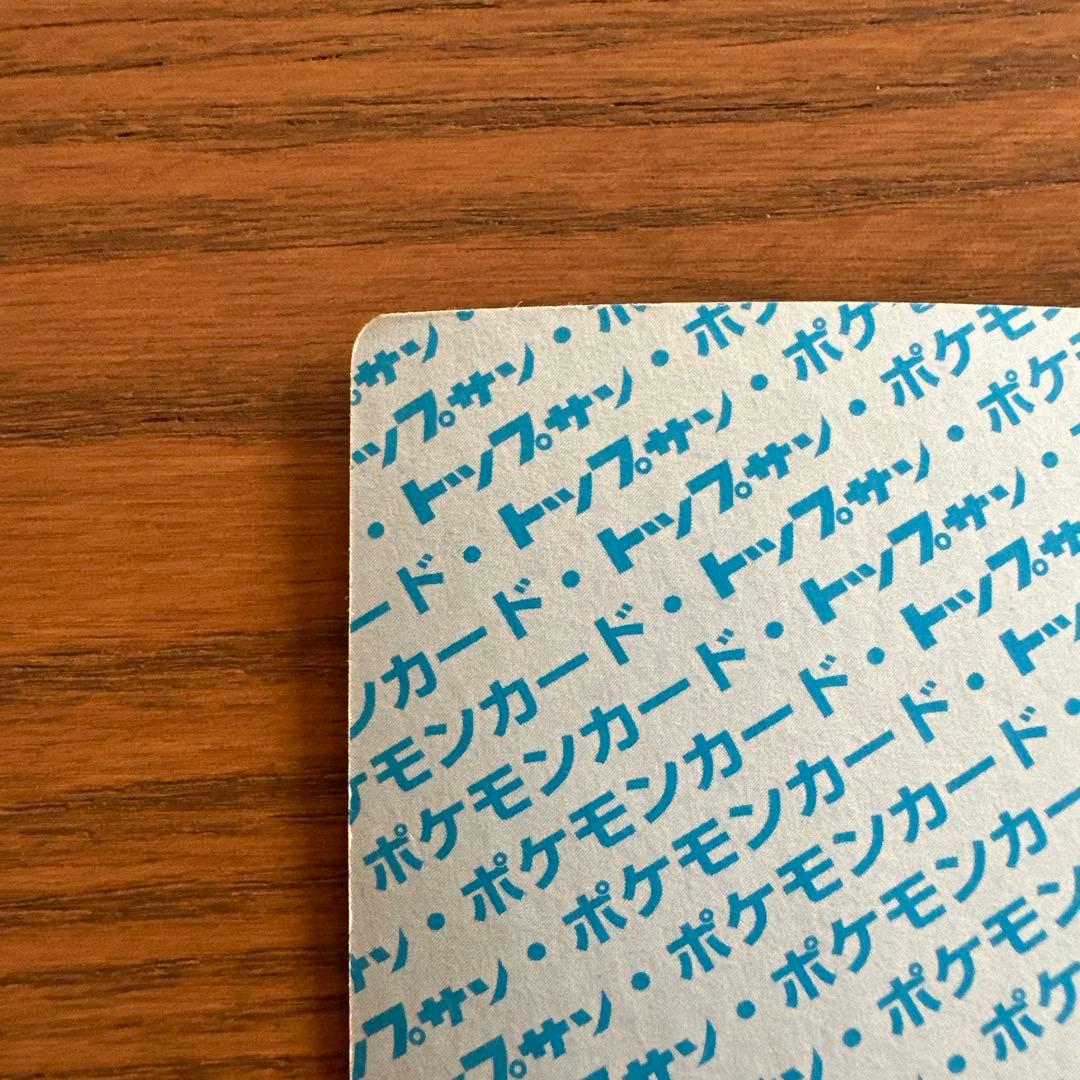 サン・
ップサン・ポ
・トップサン・ポケ
ード・トップサン・ポケ
ンカード・トップサン・ポケモ
ケモンカード・トップサン・ポケ
ポケモンカード・トップサン・
サン・ポケモンカード・トップサ
プサン・ポケモンカード・トッ
プサン・ポケモンカード・
プサン・ポケモンカー
・ポケモン
・ポケ